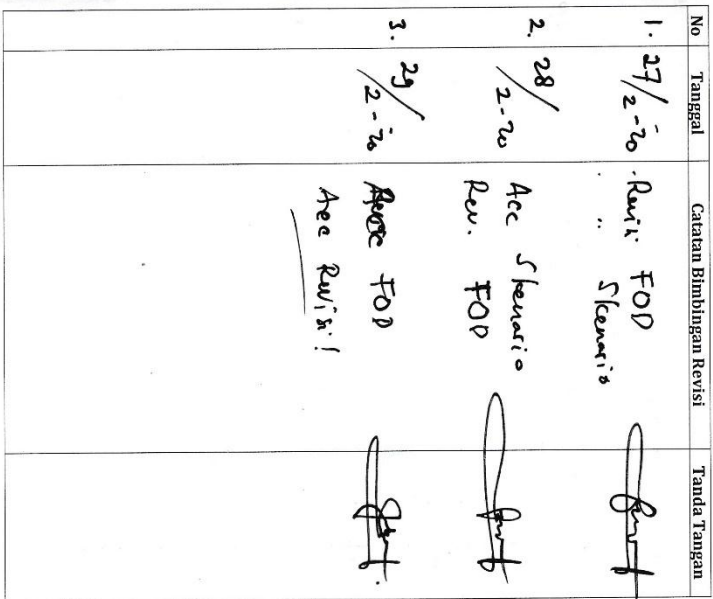 No Tanggal Catatan Bimbingan Revisi Tanda Tangan
1. 27/2-20 - Revisi FOD
" Skenario
2. 28/2-20 Acc Skenario
Rev. FOD
3. 29/2-20 Acc FOD
Acc Revisi!